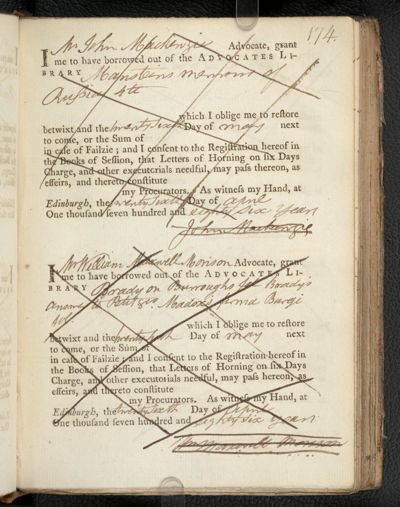 174.
I Mr John Mackenzie Advocate, grant
me to have borrowed out of the ADVOCATES LI-
BRARY Mansteins memoirs of
Russia 4to
which I oblige me to reſtore
betwixt and the twenty sixth Day of may next
to come, or the Sum of
in caſe of Failzie; and I conſent to the Regiſtration hereof in
the Books of Seſſion, that Letters of Horning on ſix Days
Charge, and other executorials needful, may paſs thereon, as
effeirs, and thereto conſtitute
my Procurators. As witneſs my Hand, at
Edinburgh, the twenty sixth Day of april
One thouſand ſeven hundred and eighty six years
John Mackenzie
I Mr William Maxwell Morison Advocate, grant
me to have borrowed out of the ADVOCATES LI-
BRARY Brady on Burroughs Brady's
answer to Petit Madox firma Burgi
which I oblige me to reſtore
betwixt and the twenty sixth Day of may next
to come, or the Sum of
in caſe of Failzie; and I conſent to the Regiſtration hereof in
the Books of Seſſion, that Letters of Horning on ſix Days
Charge, and other executorials needful, may paſs hereon, as
effeirs, and thereto conſtitute
my Procurators. As witneſs my Hand, at
Edinburgh, the twenty sixth Day of April
One thouſand ſeven hundred and eighty six years
Wm Maxwell Morison